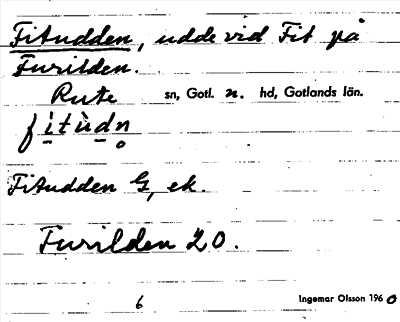 Fitudden, udde vid Fit på
Furilden.
Rute sn, Gotl. n. hd, Gotlands län.
fìtùdn̥
Fitudden G, ek.
Furilden 20.
6 Ingemar Olsson 1960